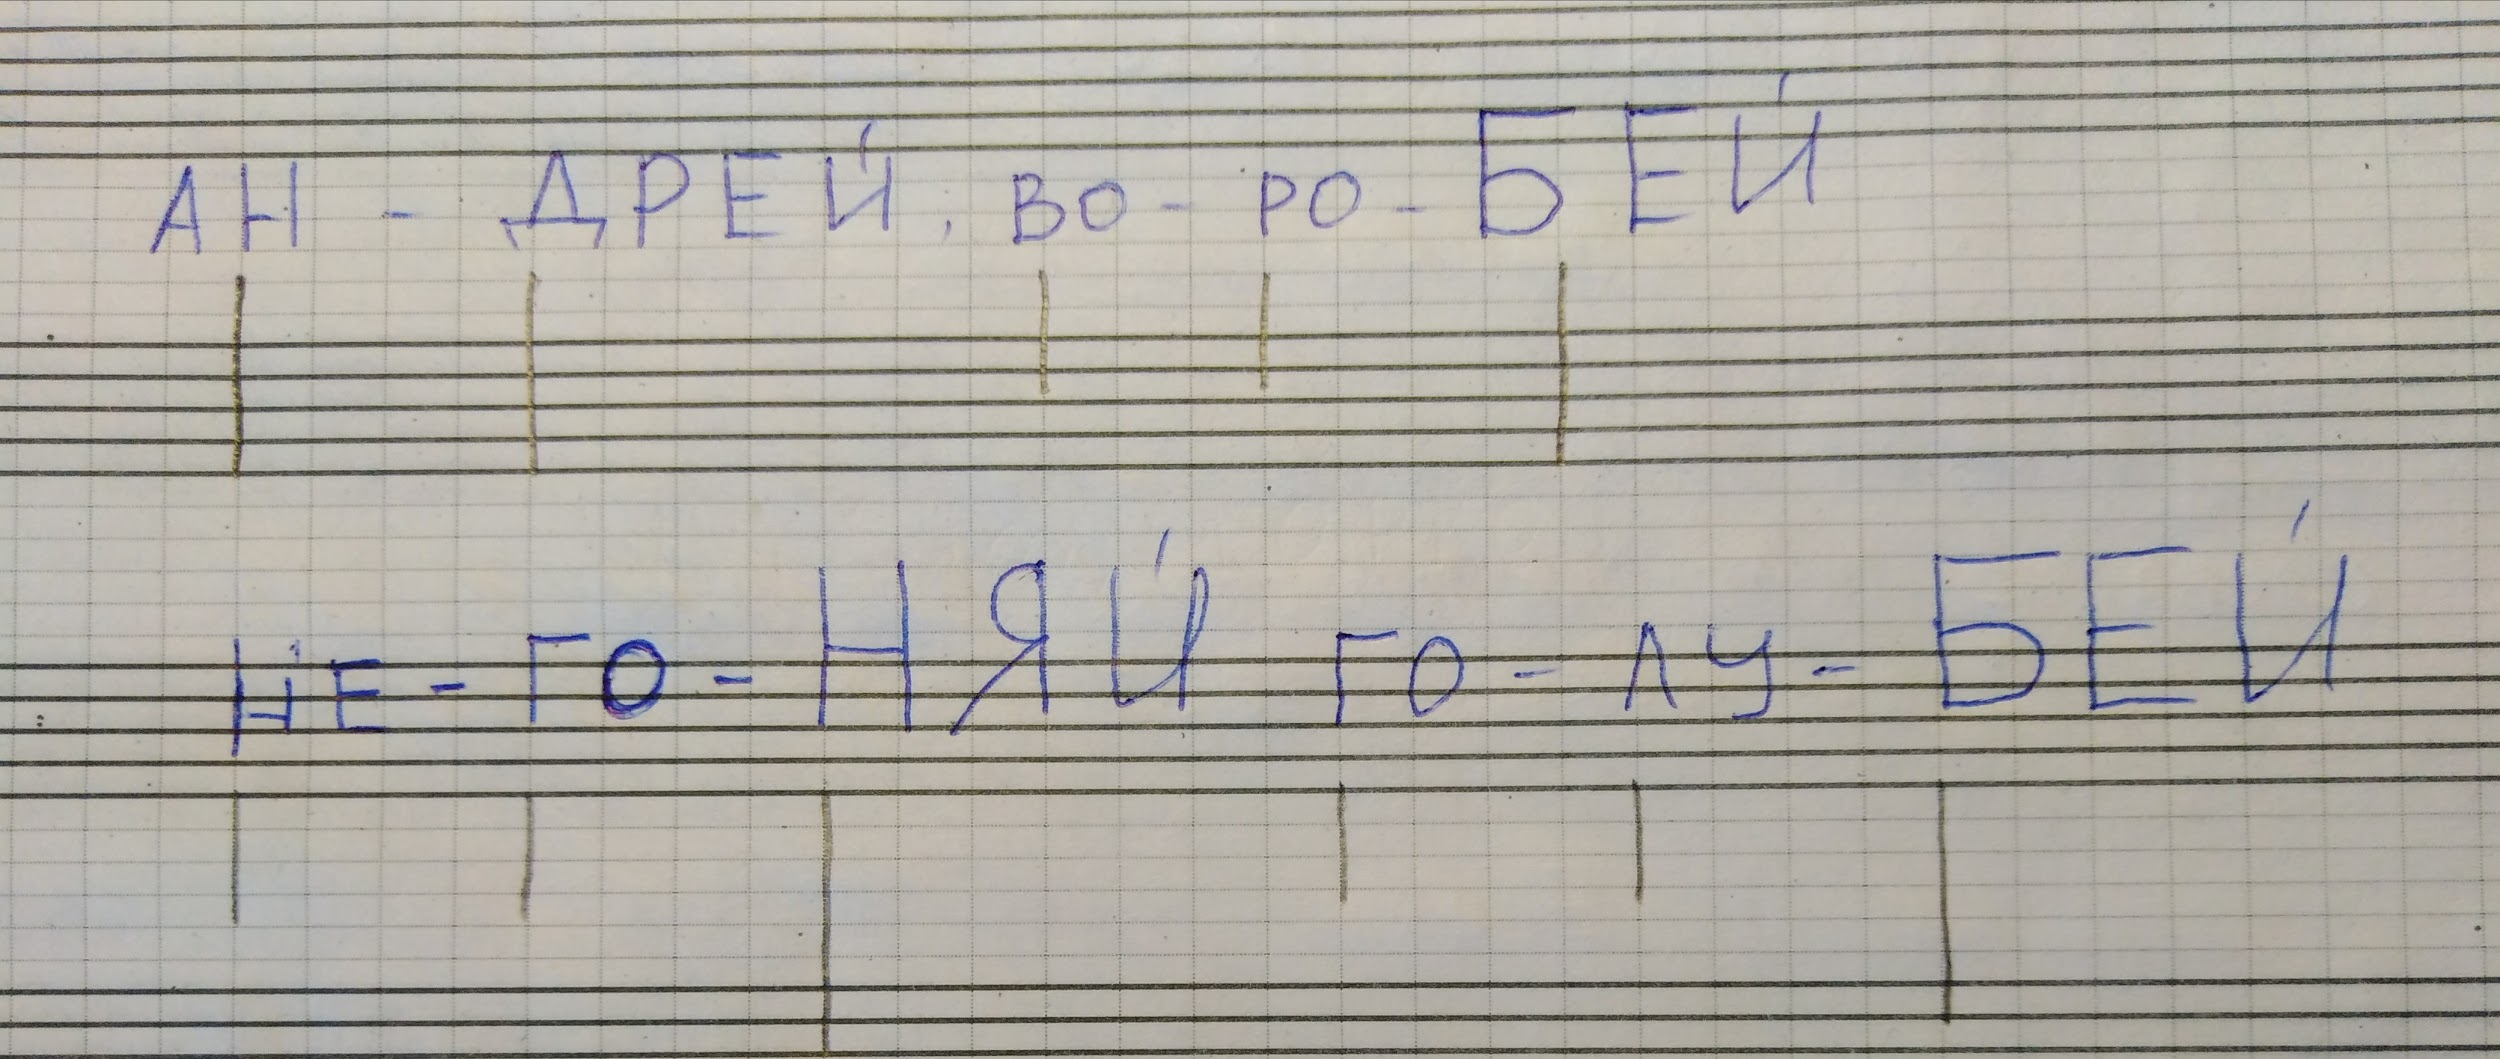 АН - ДРЕЙ, ВО - РО - БЕЙ
НЕ - ГО - НЯЙ ГО - ЛУ - БЕЙ